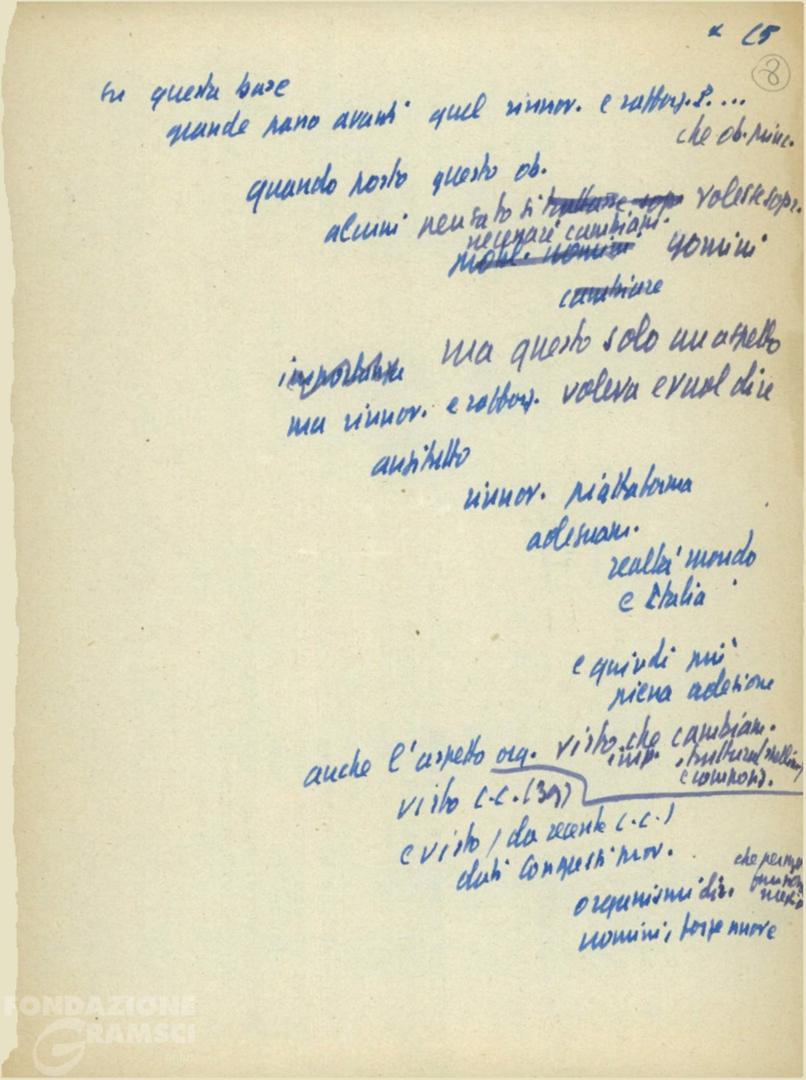 × 15
8
su questa base
grande passo avanti quel rinnov. e rafforz. P. ...
che ob. princ.
quando posto questo ob.
alcuni pensato si trattasse sopr volesse sopr.
necessari cambiam.
uomini
cambiare
importante ma questo solo un aspetto
ma rinnov. e rafforz. voleva e vuol dire
anzitutto
rinnov. piattaforma
adeguam.
realtà mondo
e Italia
e quindi più
piena adesione
anche l'aspetto org. visto che cambiam.
imp. struttura
e compos.
visto C.C. (39)
e visto (da recente C.C.)
dati Congressi prov.
che
organismi dir.
uomini, forze nuove
FONDAZIONE
GRAMSCI